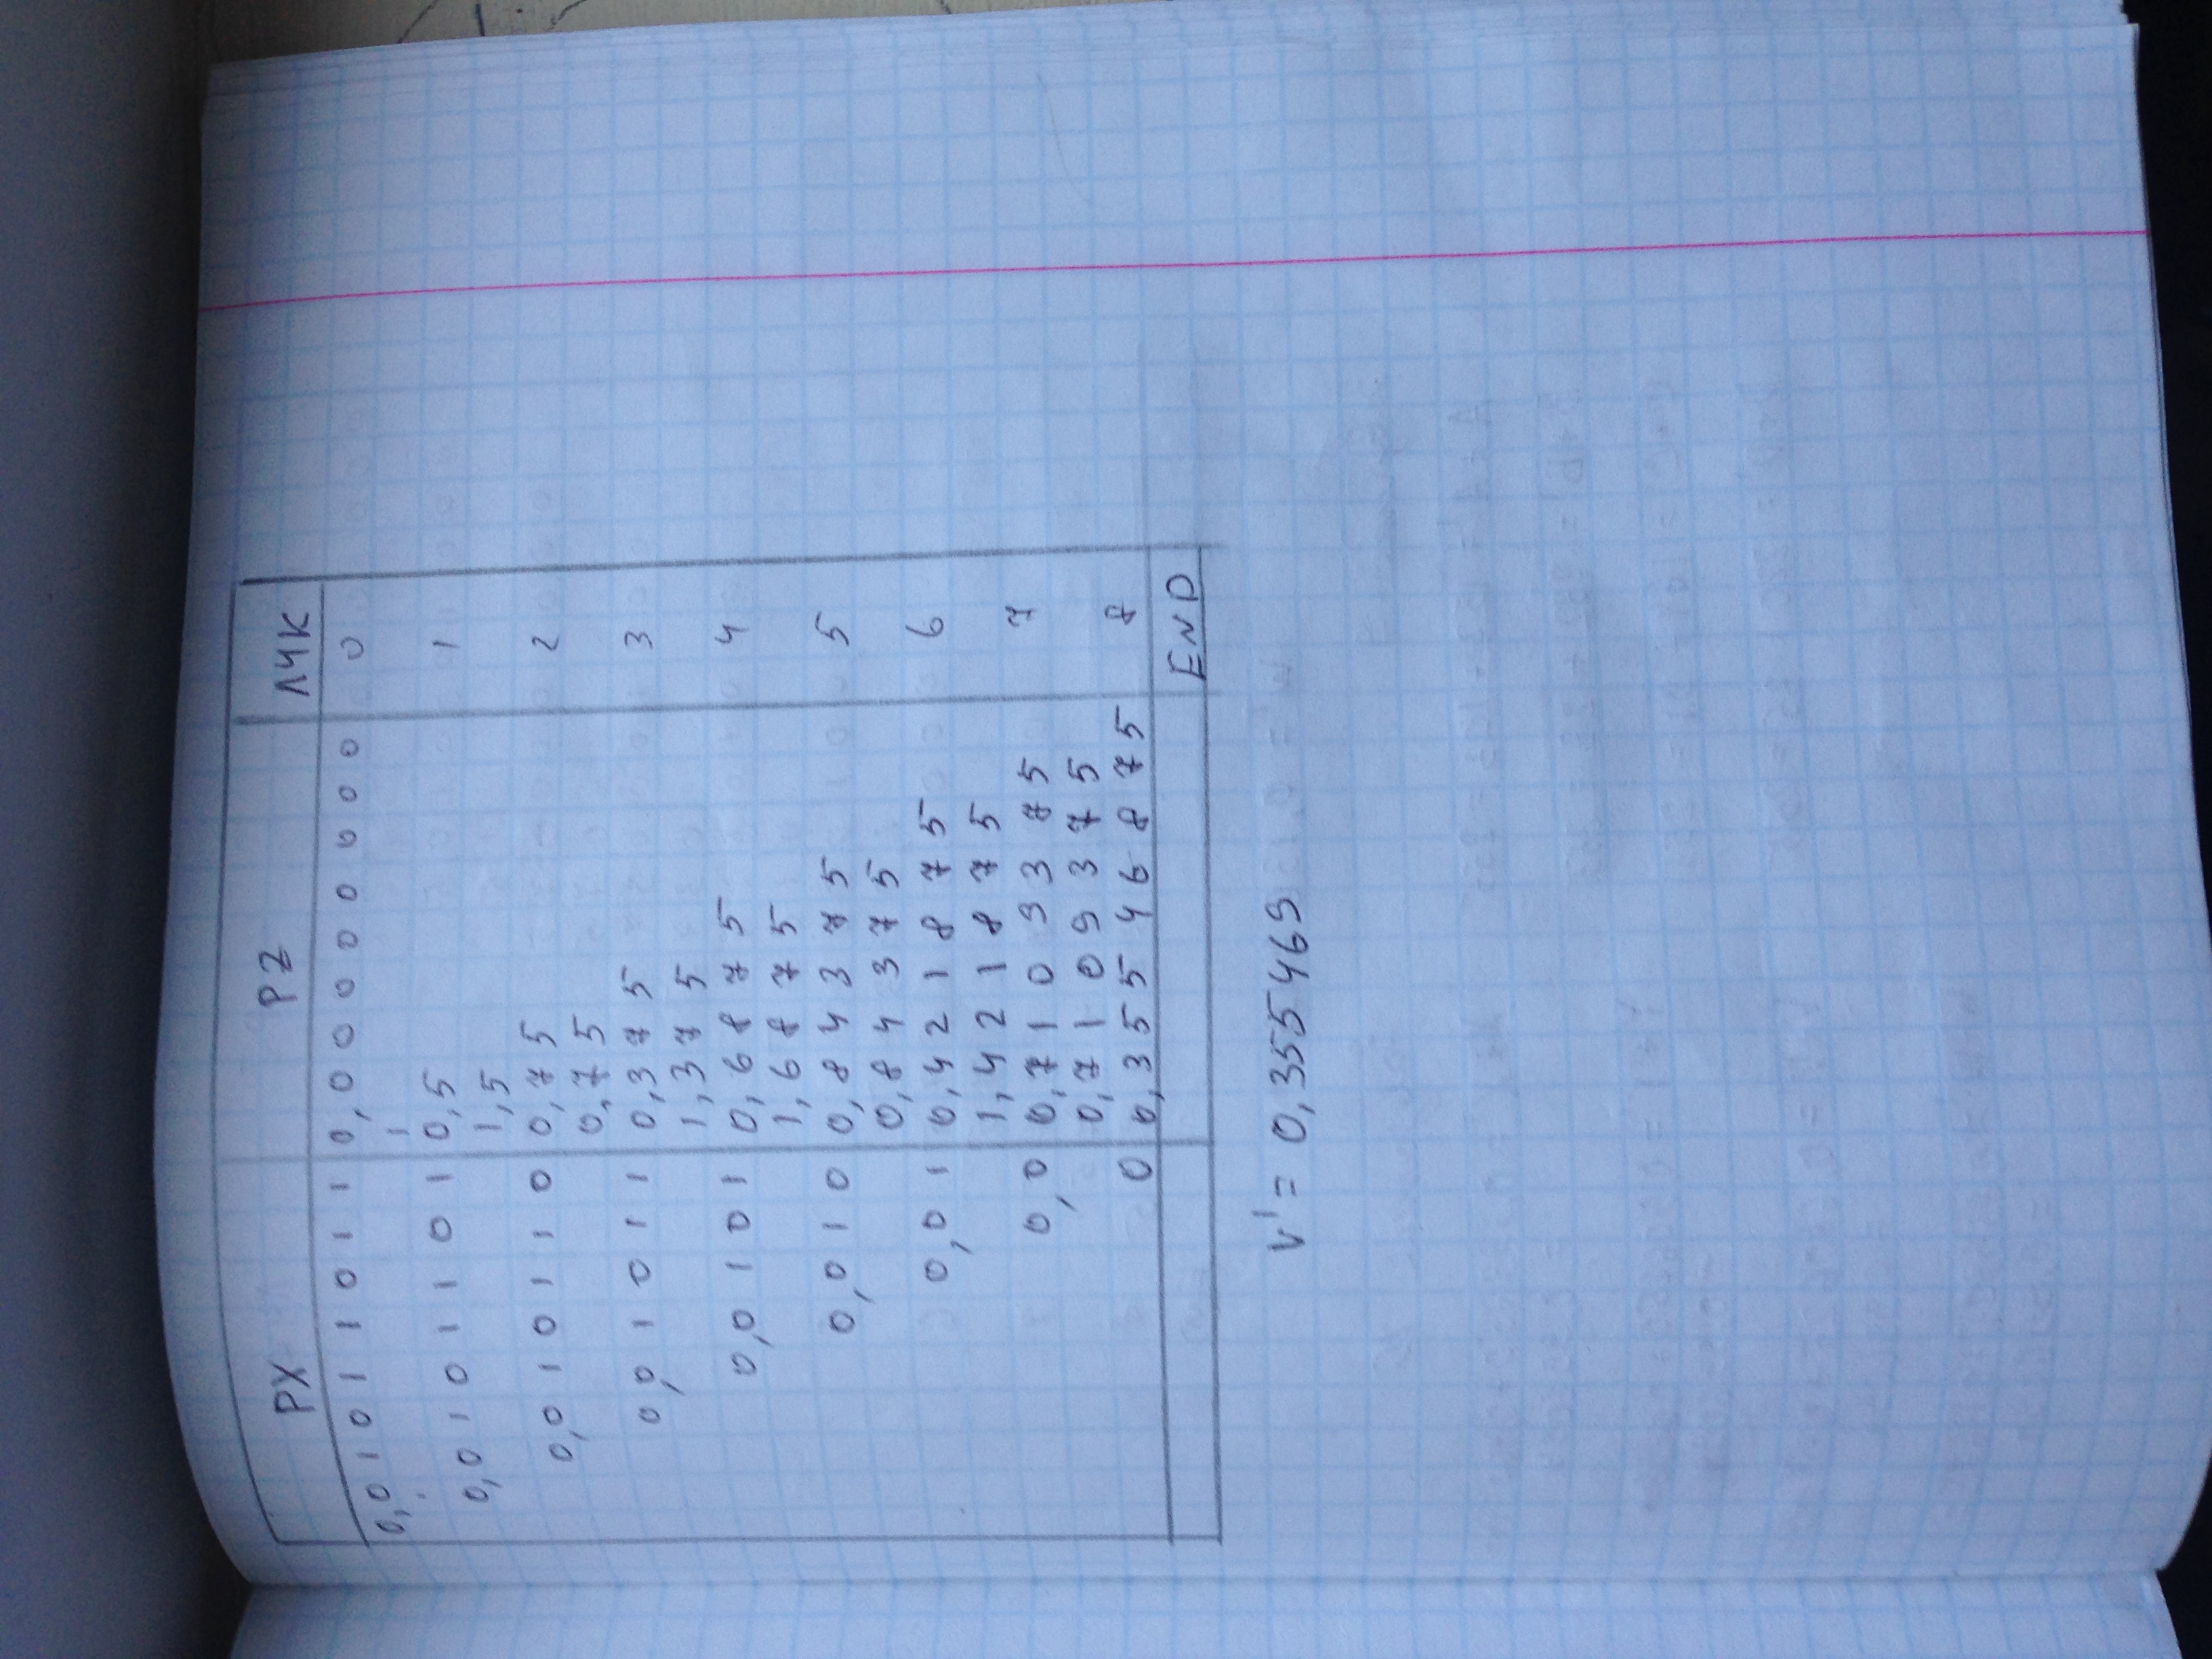 РХ PZ ЛЧК
0,01011011 0,00000000 0
1
0,0101101 0,5 1
1,5
0,010110 0,75 2
0,75
0,01011 0,375 3
1,375
0,0101 0,6875 4
1,6875
0,010 0,84375 5
0,84375
0,01 0,421875 6
1,421875
0,0 0,7109375 7
0,7109375
0 0,35546875 8
END
V' = 0,355469